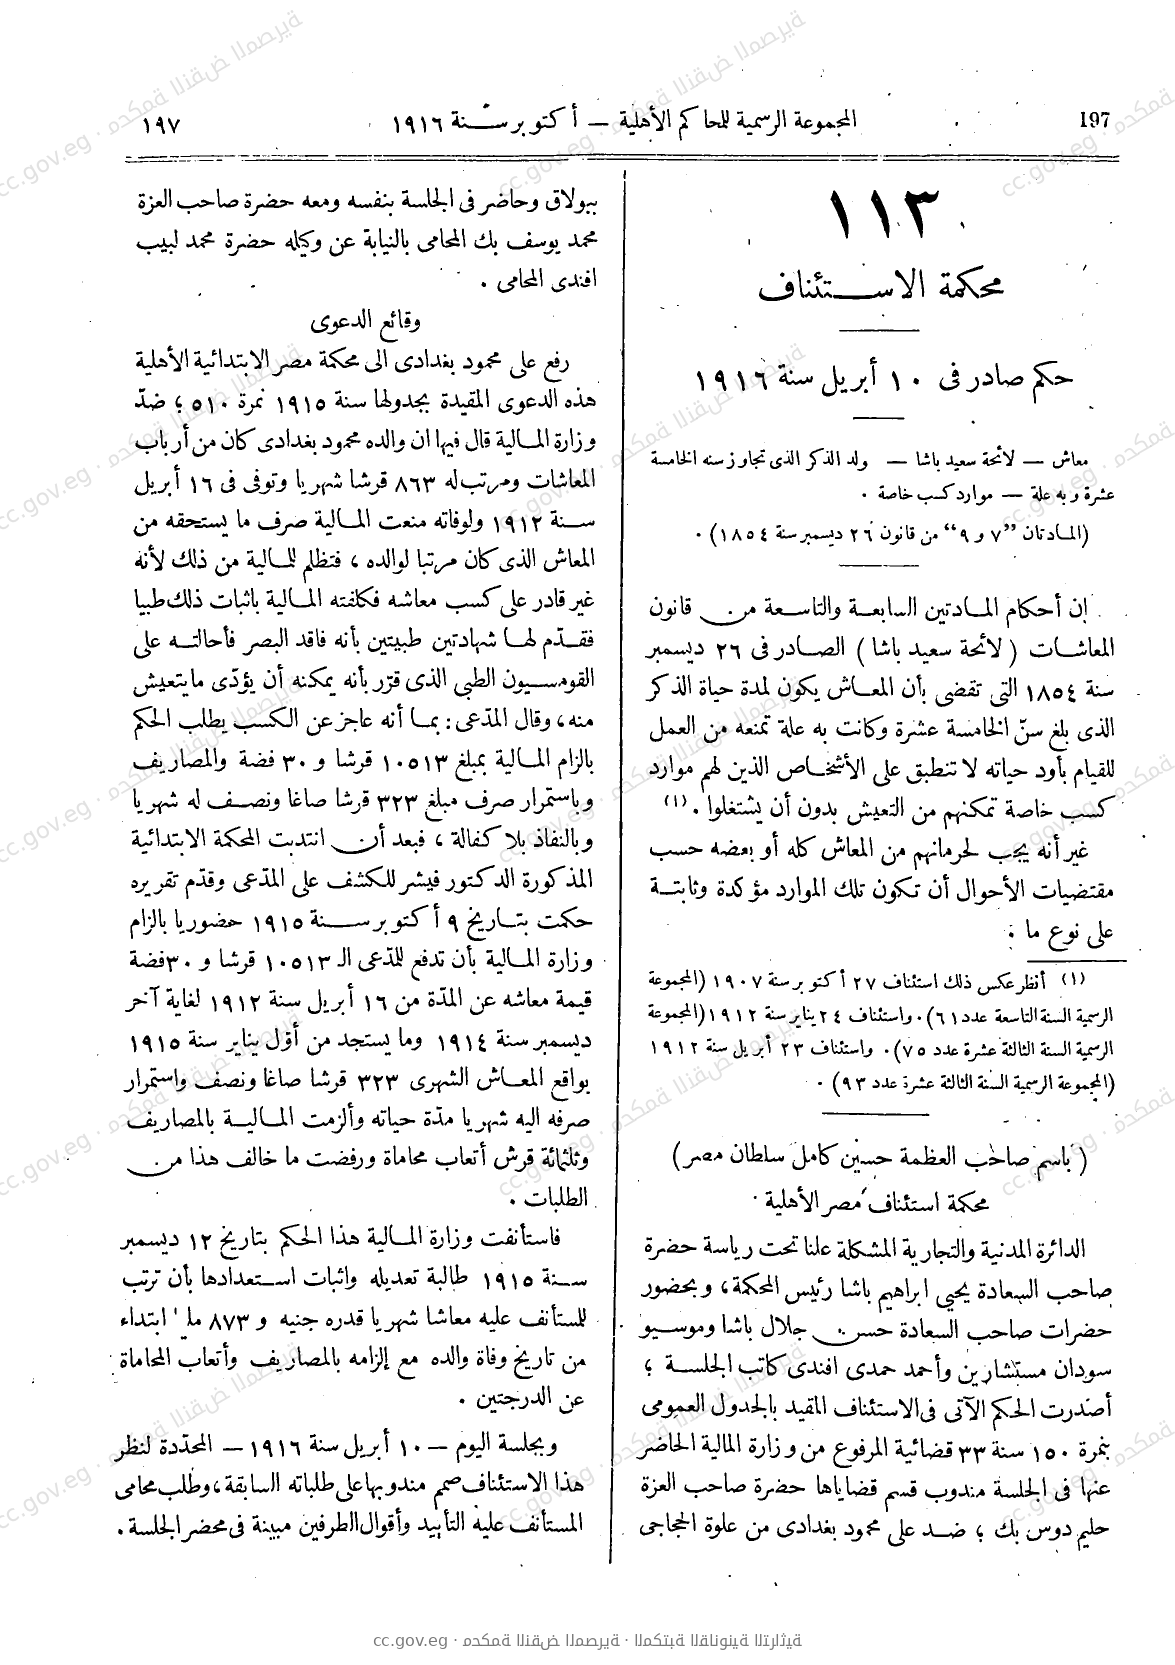 197
المجموعة الرسمية للمحاكم الأهلية — أكتوبر سنة ١٩١٦
١٩٧
١١٣
محكمة الاستئناف
حكم صادر فى ١٠ أبريل سنة ١٩١٦
معاش — لائحة سعيد باشا — ولد الذكر الذى تجاوز سنه الخامسة
عشرة وبه علة — موارد كسب خاصة .
(المادتان ”٧ و ٩“ من قانون ٢٦ ديسمبر سنة ١٨٥٤) .
إن أحكام المادتين السابعة والتاسعة من قانون
المعاشات (لائحة سعيد باشا) الصادر فى ٢٦ ديسمبر
سنة ١٨٥٤ التى تقضى بأن المعاش يكون لمدة حياة الذكر
الذى بلغ سنّ الخامسة عشرة وكانت به علة تمنعه من العمل
للقيام بأود حياته لا تنطبق على الأشخاص الذين لهم موارد
كسب خاصة تمكنهم من التعيش بدون أن يشتغلوا . (١)
غير أنه يجب لحرمانهم من المعاش كله أو بعضه حسب
مقتضيات الأحوال أن تكون تلك الموارد مؤكدة وثابتة
على نوع ما .
(١) أنظر عكس ذلك استئناف ٢٧ أكتوبر سنة ١٩٠٧ (المجموعة
الرسمية السنة التاسعة عدد ٦١) . واستئناف ٢٤ يناير سنة ١٩١٢ (المجموعة
الرسمية السنة الثالثة عشرة عدد ٧٥) . واستئناف ٢٣ أبريل سنة ١٩١٢
(المجموعة الرسمية السنة الثالثة عشرة عدد ٩٣) .
(باسم صاحب العظمة حسين كامل سلطان مصر)
محكمة استئناف مصر الأهلية .
الدائرة المدنية والتجارية المشكلة علنا تحت رياسة حضرة
صاحب السعادة يحيى ابراهيم باشا رئيس المحكمة، وبحضور
حضرات صاحب السعادة حسن جلال باشا وموسيو
سودان مستشارين وأحمد حمدى افندى كاتب الجلسة ؛
أصدرت الحكم الآتى فى الاستئناف المقيد بالجدول العمومى
بنمرة ١٥٠ سنة ٣٣ قضائية المرفوع من وزارة المالية الحاضر
عنها فى الجلسة مندوب قسم قضاياها حضرة صاحب العزة
حليم دوس بك ؛ ضد على محمود بغدادى من علوة الحجاجى
ببولاق وحاضر فى الجلسة بنفسه ومعه حضرة صاحب العزة
محمد يوسف بك المحامى بالنيابة عن وكيله حضرة محمد لبيب
افندى المحامى .
وقائع الدعوى
رفع على محمود بغدادى الى محكمة مصر الابتدائية الأهلية
هذه الدعوى المقيدة بجدولها سنة ١٩١٥ نمرة ٥١٠ ؛ ضدّ
وزارة المالية قال فيها ان والده محمود بغدادى كان من أرباب
المعاشات ومرتب له ٨٦٣ قرشا شهريا وتوفى فى ١٦ أبريل
سنة ١٩١٢ ولوفاته منعت المالية صرف ما يستحقه من
المعاش الذى كان مرتبا لوالده ، فتظلم للمالية من ذلك لأنه
غير قادر على كسب معاشه فكلفته المالية باثبات ذلك طبيا
فقدّم لها شهادتين طبيتين بأنه فاقد البصر فأحالته على
القومسيون الطبى الذى قرّر بأنه يمكنه أن يؤدّى ما يتعيش
منه، وقال المدّعى : بما أنه عاجز عن الكسب يطلب الحكم
بالزام المالية بمبلغ ١٠٥١٣ قرشا و ٣٠ فضة والمصاريف
وباستمرار صرف مبلغ ٣٢٣ قرشا صاغا ونصف له شهريا
وبالنفاذ بلا كفالة ، فبعد أن انتدبت المحكمة الابتدائية
المذكورة الدكتور فيشر للكشف على المدّعى وقدّم تقريره
حكمت بتاريخ ٩ أكتوبر سنة ١٩١٥ حضوريا بالزام
وزارة المالية بأن تدفع للمدّعى الـ ١٠٥١٣ قرشا و ٣٠ فضة
قيمة معاشه عن المدّة من ١٦ أبريل سنة ١٩١٢ لغاية آخر
ديسمبر سنة ١٩١٤ وما يستجد من أوّل يناير سنة ١٩١٥
بواقع المعاش الشهرى ٣٢٣ قرشا صاغا ونصف واستمرار
صرفه اليه شهريا مدّة حياته وألزمت المالية بالمصاريف
وثلثمائة قرش أتعاب محاماة ورفضت ما خالف هذا من
الطلبات .
فاستأنفت وزارة المالية هذا الحكم بتاريخ ١٢ ديسمبر
سنة ١٩١٥ طالبة تعديله واثبات استعدادها بأن ترتب
للمستأنف عليه معاشا شهريا قدره جنيه و ٨٧٣ مليما ابتداء
من تاريخ وفاة والده مع إلزامه بالمصاريف وأتعاب المحاماة
عن الدرجتين .
وبجلسة اليوم — ١٠ أبريل سنة ١٩١٦ — المحدّدة لنظر
هذا الاستئناف صمم مندوبها على طلباته السابقة، وطلب محامى
المستأنف عليه التأييد وأقوال الطرفين مبينة فى محضر الجلسة .
cc.gov.eg · محكمة النقض المصرية · المكتبة القانونية التراثية